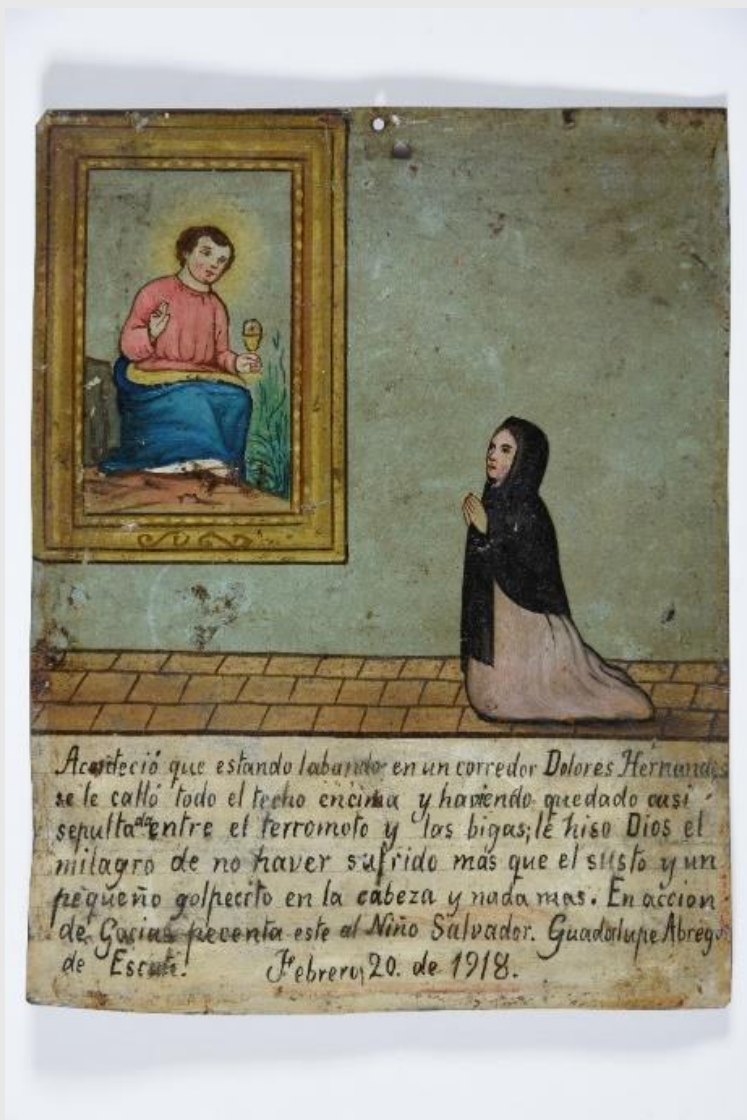 Aconteció que estando labando en un corredor Dolores Hernandes
se le calló todo el techo encima y haviendo quedado casi
sepultada entre el terromoto y las bigas; le hiso Dios el
milagro de no haver sufrido más que el susto y un
pequeño golpecito en la cabeza y nada mas. En accion
de Gacias pecenta este al Niño Salvador. Guadalupe Abrego
de Febrero, 20. de 1918.